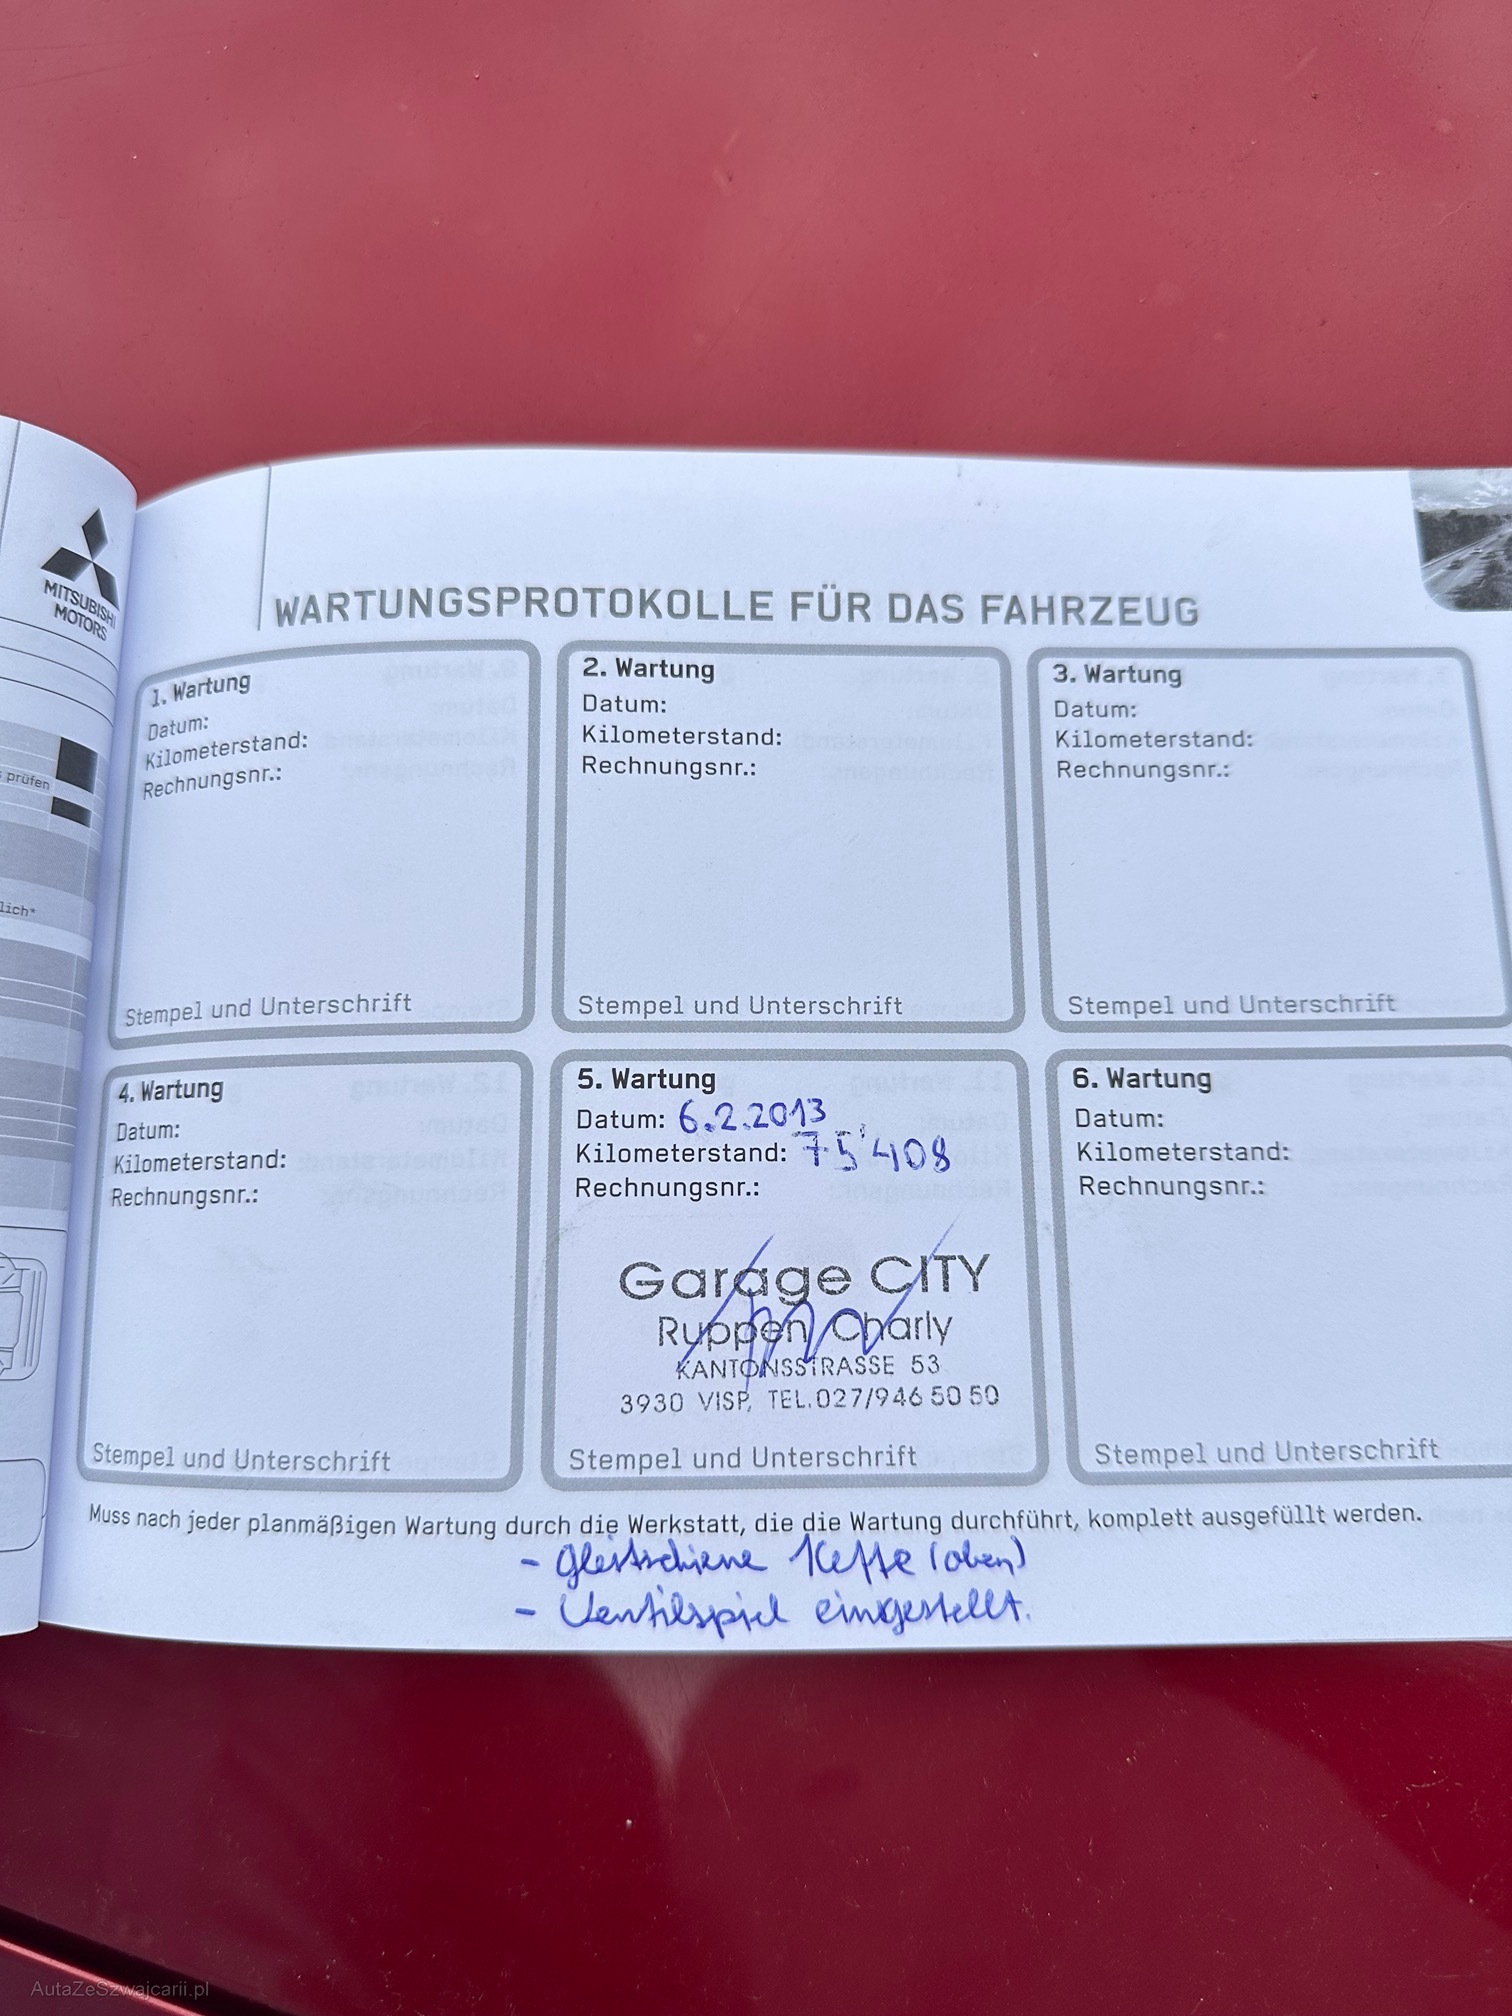 MITSUBISHI
MOTORS
prüfen
lich*
WARTUNGSPROTOKOLLE FÜR DAS FAHRZEUG
1. Wartung
Datum:
Kilometerstand:
Rechnungsnr.:
Stempel und Unterschrift
2. Wartung
Datum:
Kilometerstand:
Rechnungsnr.:
Stempel und Unterschrift
3. Wartung
Datum:
Kilometerstand:
Rechnungsnr.:
Stempel und Unterschrift
4. Wartung
Datum:
Kilometerstand:
Rechnungsnr.:
Stempel und Unterschrift
5. Wartung
Datum: 6.2.2013
Kilometerstand: 75'408
Rechnungsnr.:
Garage CITY
Ruppen Charly
KANTONSSTRASSE 53
3930 VISP, TEL.027/946 50 50
Stempel und Unterschrift
6. Wartung
Datum:
Kilometerstand:
Rechnungsnr.:
Stempel und Unterschrift
Muss nach jeder planmäßigen Wartung durch die Werkstatt, die die Wartung durchführt, komplett ausgefüllt werden.
- Gleitschiene Kette (oben)
- Ventilspiel eingestellt.
AutaZeSzwajcarii.pl